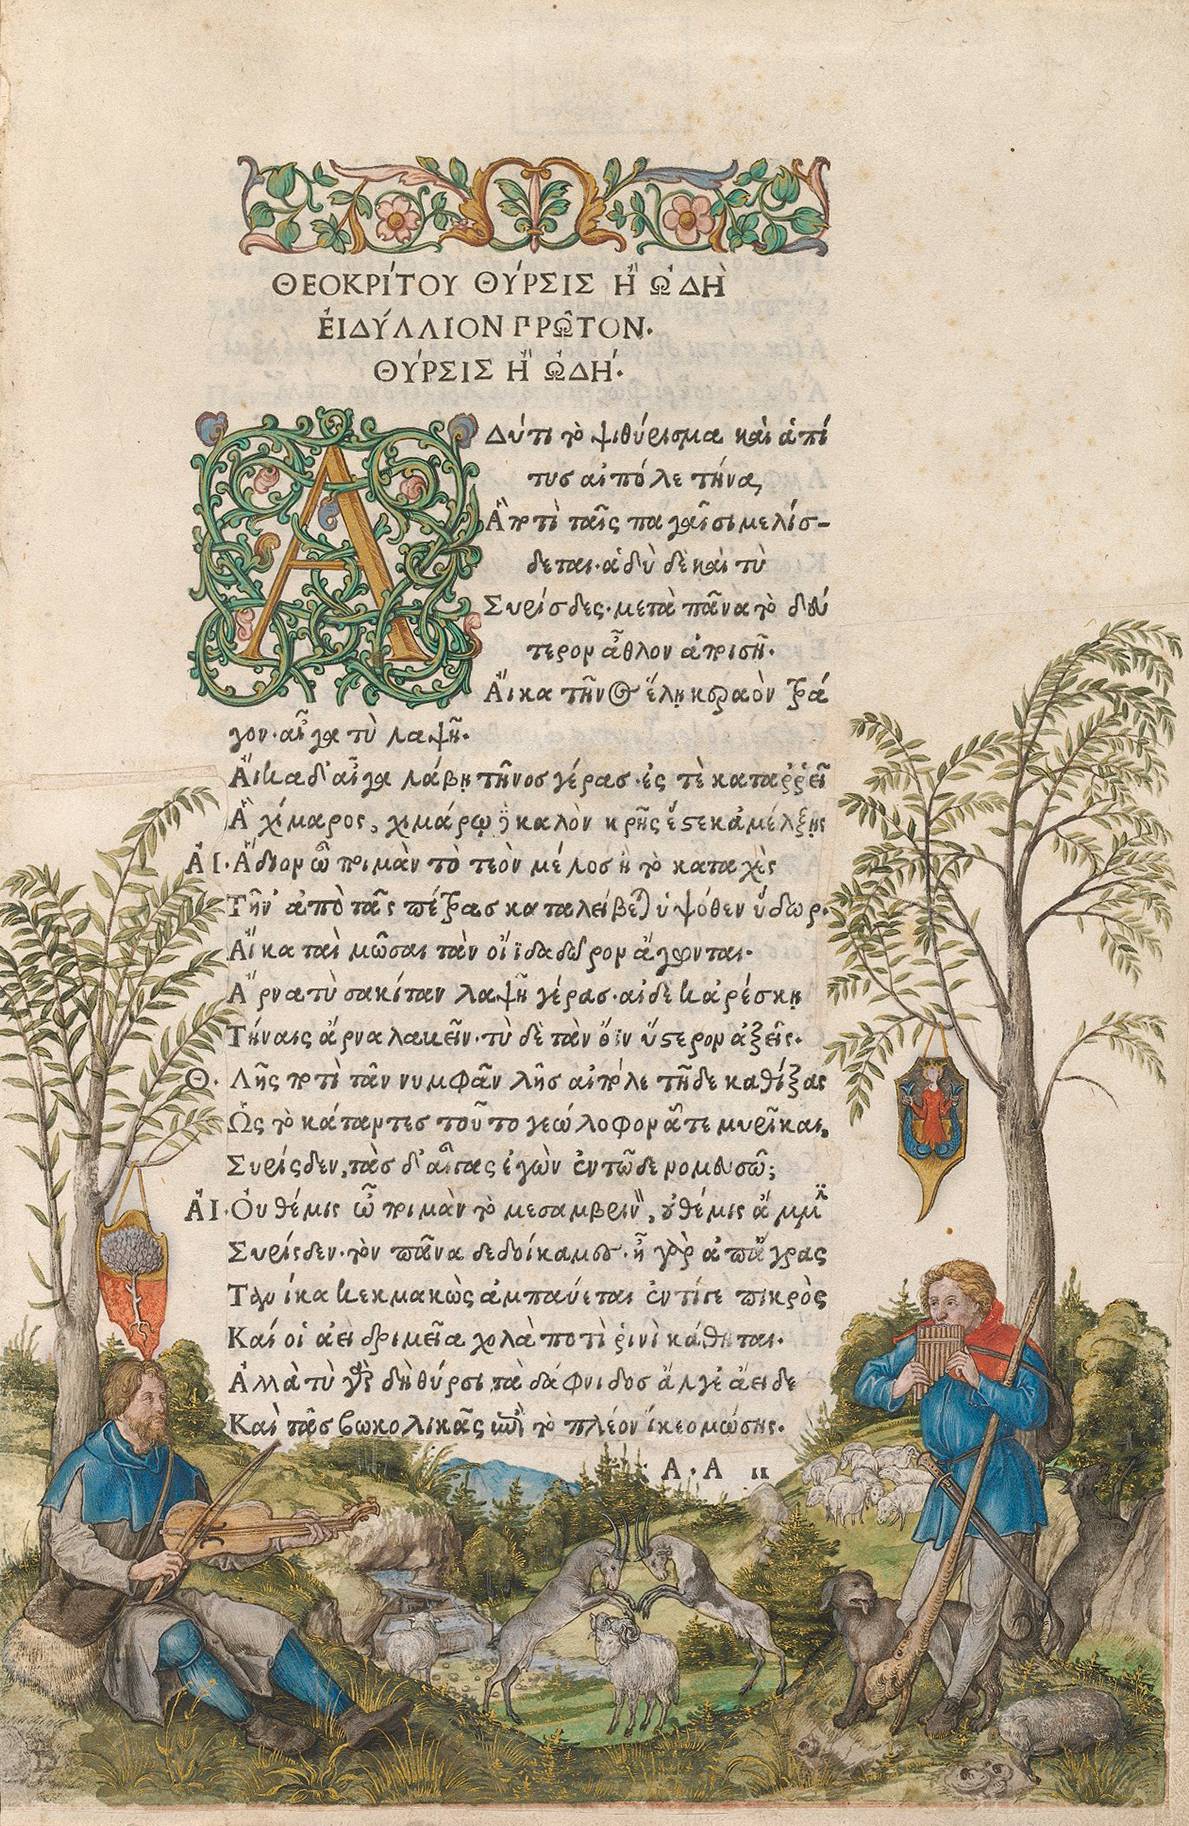 ΘΕΟΚΡΊΤΟΥ ΘΎΡΣΙΣ Ἢ ὨΔῊ
ἘΙΔΎΛΛΙΟΝ ΠΡΩ͂ΤΟΝ.
ΘΎΡΣΙΣ Ἢ ὨΔΉ.
ΑΔύτι τὸ ψιθύρισμα καὶ ἁ πί
τυσ αἰπόλε τήνα,
Ἃ ποτὶ ταῖς παγαῖσι μελίσ-
δεται. ἁδὺ δὲ καὶ τὺ
Συρίσδες. μετὰ πᾶνα τὸ δεύ
τερον ἆθλον ἀποισῆ.
Ἄικα τῆνος ἕλῃ κεραὸν τρά
γον. αἶγα τὺ λαψῆ.
Ἄικα δ' αἶγα λάβῃ τῆνοσ γέρασ. ἐς τὲ καταῤῥεῖ
Ἁ χίμαρος, χιμάρῳ δὲ καλὸν κρῆς ἔςε κ' ἀμέλξῃς
ἈΙ. Ἅδιον ὦ ποιμὰν τὸ τεὸν μέλοσ ἢ τὸ καταχὲς
Τῆν' ἀπὸ τᾶς πέτρασ καταλείβεται ὑψόθεν ὕδωρ.
Ἄικα ταὶ μῶσαι τὰν οἴϊδα δῶρον ἄγωνται.
Ἄρνα τὺ σακίταν λαψῆ γέρασ. αἰ δέ κ' ἀρέσκῃ
Τήναις ἄρνα λαβεῖν. τὺ δὲ τὰν ὄϊν ὕςερον ἀξεῖς.
Θ. Λῆς ποτὶ τᾶν νυμφᾶν λῆσ αἰπόλε τῆδε καθίξας
Ὡς τὸ κάταντες τοῦτο γεώλοφον ἅτε μυρῖκαι,
Συρίςδεν, τὰσ δ' αἶγας ἐγὼν ἐν τῶδε νομευσῶ;
ἈΙ. Ὀυ θέμις ὦ ποιμὰν τὸ μεσαμβρινὸν, ὀυ θέμις ἄμμιν
Συρίςδεν. τὸν πᾶνα δεδοίκαμες. ἦ γὰρ ἀπ' ἄγρας
Τανίκα κεκμακὼς ἀμπαύεται ἐντί γε πικρὸς
Καί οἱ ἀεὶ δριμεῖα χολὰ ποτὶ ῥινὶ κάθηται.
Ἀλλὰ τὺ γὰρ δὴ θύρσι τὰ δάφνιδοσ ἄλγε' ἄειδε
Καὶ τᾶσ βωκολικᾶς ἐπὶ τὸ πλέον ἵκεο μώσης.
Α.Α ιι